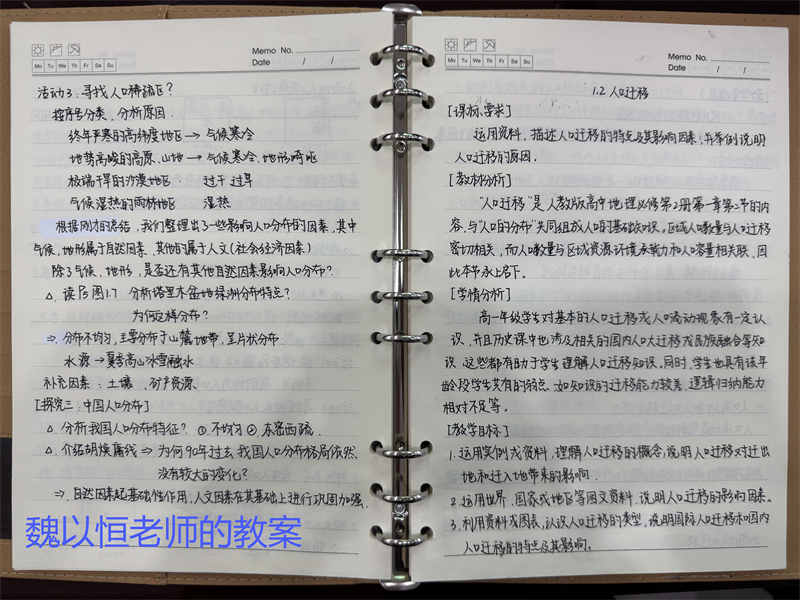 Memo No.
Mo Tu We Th Fr Sa Su
Date / /
活动3：寻找人口稀疏区？
按序号分类，分析原因.
终年严寒的高纬度地区→气候寒冷
地势高峻的高原、山地→气候寒冷、地形崎岖
极端干旱的沙漠地区：过于干旱
气候湿热的雨林地区 湿热
根据刚才的总结，我们整理出了一些影响人口分布的因素，其中
气候、地形属于自然因素，其他的属于人文(社会经济因素)
除了气候、地形，是否还有其他自然因素影响人口分布？
△ 读P5图1.7 分析塔里木盆地绿洲分布特点？
为何这样分布？
⇒ 分布不均匀，主要分布于山麓地带，呈片状分布
水源→夏季高山冰雪融水
补充因素：土壤、矿产资源
[探究三：中国人口分布]
△ 分析我国人口分布特征？ ①不均匀 ②东密西疏.
△ 介绍胡焕庸线⇒为何90年过去我国人口分布格局依然
没有较大的变化？
⇒ 自然因素起基础性作用，人文因素在其基础上进行巩固加强.
魏以恒老师的教案
Memo No.
Mo Tu We Th Fr Sa Su
Date / /
1.2 人口迁移
[课标要求]
运用资料，描述人口迁移的特点及其影响因素，并举例说明
人口迁移的原因.
[教材分析]
"人口迁移"是人教版高中地理必修第2册第一章第二节的内
容，与"人口的分布"共同组成人口的基础知识，区域人口数量与人口迁移
密切相关，而人口数量与区域资源环境承载力和人口容量相关联，因
此本节承上启下。
[学情分析]
高一年级学生对基本的人口迁移或人口流动现象有一定认
识，并且历史课中也涉及相关的国内人口大迁移或民族融合等知
识，这些都有助于学生理解人口迁移知识。同时，学生也具有该年
龄段学生共有的弱点，如知识的迁移能力较差、逻辑归纳能力
相对不足等。
[教学目标]
1. 运用实例或资料，理解人口迁移的概念，说明人口迁移对迁出
地和迁入地带来的影响.
2. 运用世界、国家或地区等图文资料，说明人口迁移的影响因素。
3. 利用资料或图表，认识人口迁移的类型，说明国际人口迁移和国内
人口迁移的特点及其影响。